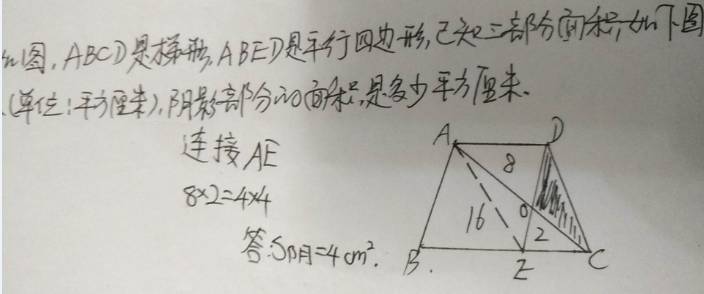 如图,ABCD是梯形,ABED是平行四边形,已知三部分面积,如下图
(单位:平方厘米),阴影部分的面积是多少平方厘米.
连接AE
8×2=4×4
答:S阴=4cm².
A
D
8
16
O
2
B.
E
C